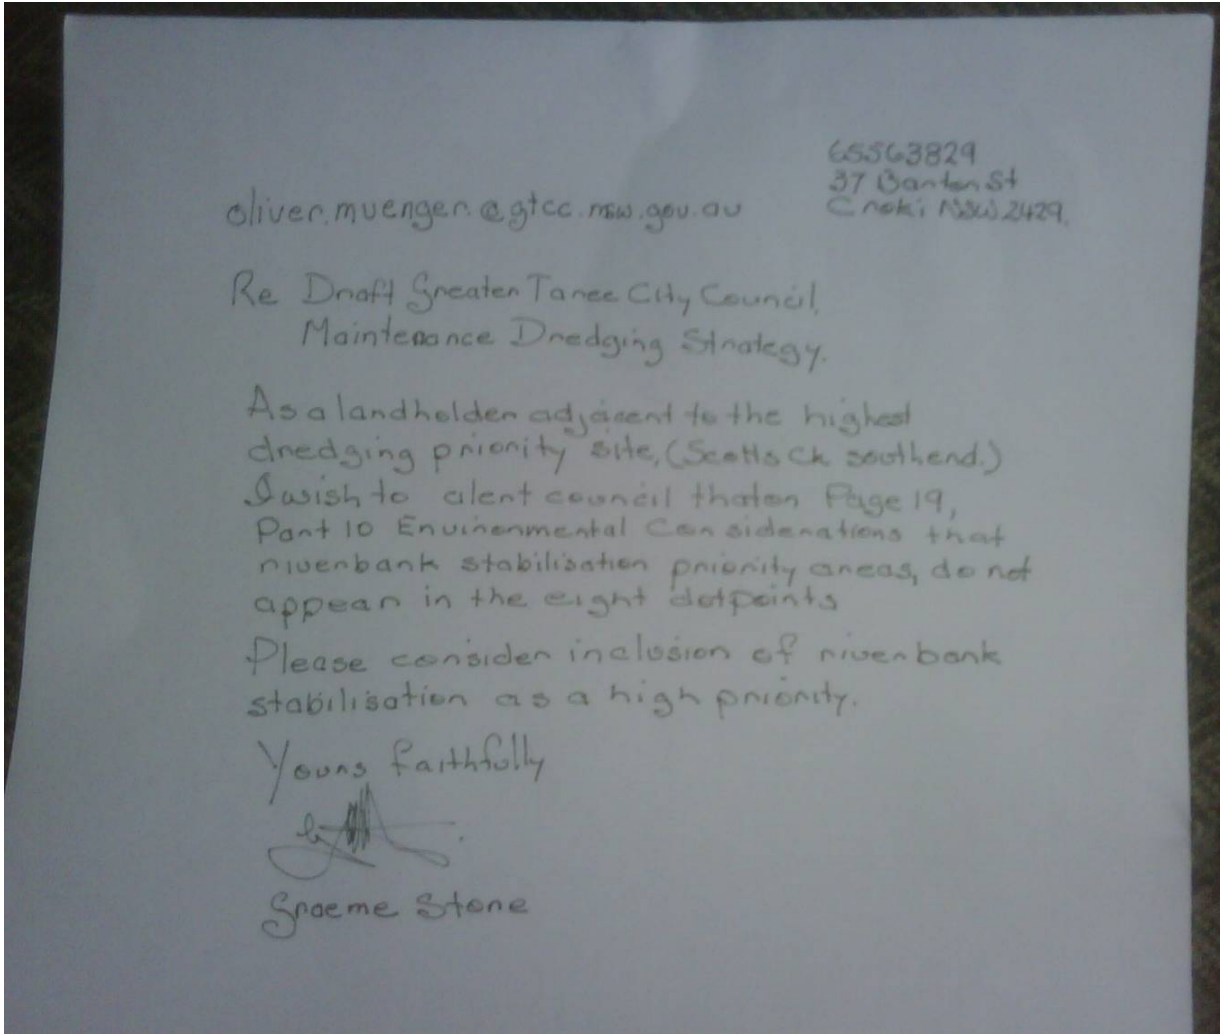 65563829
37 Barton St
Croki NSW 2429.
oliver.muenger.@gtcc.nsw.gov.au
Re Draft Greater Taree City Council,
Maintenance Dredging Strategy.
As a landholder adjacent to the highest
dredging priority site, (Scotts Ck southend.)
I wish to alert council that on Page 19,
Part 10 Environmental Considerations that
riverbank stabilisation priority areas, do not
appear in the eight dotpoints
Please consider inclusion of riverbank
stabilisation as a high priority.
Yours faithfully
Graeme Stone